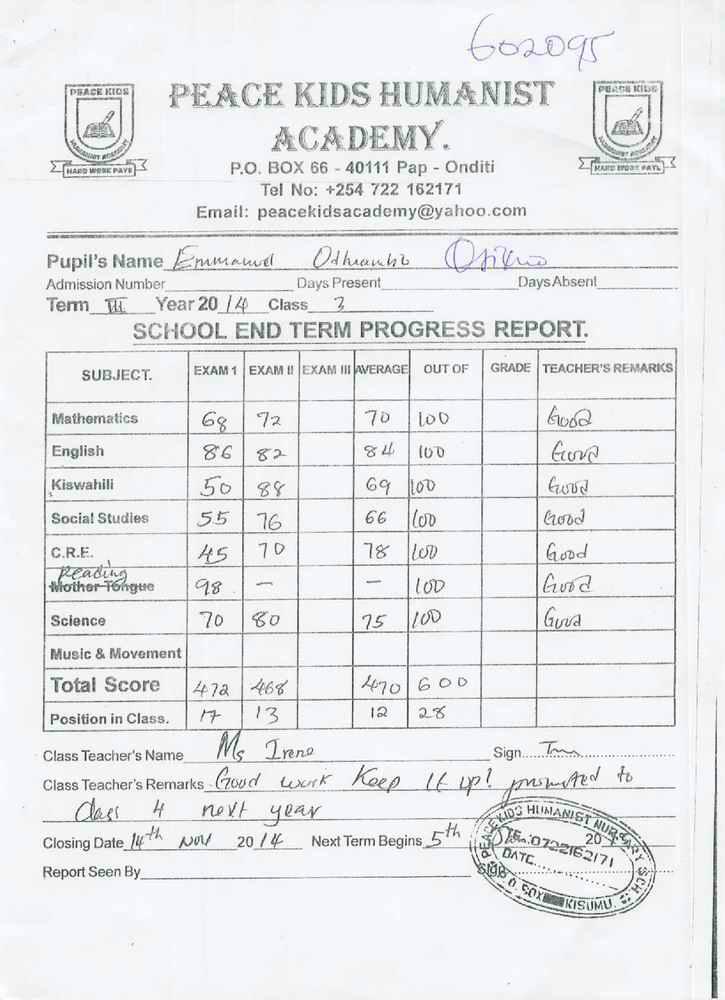 602095
PEACE KIDS HUMANIST
ACADEMY.
PEACE KIDS
HUMANIST ACADEMY
HARD WORK PAYS
PEACE KIDS
HUMANIST ACADEMY
HARD WORK PAYS
P.O. BOX 66 - 40111 Pap - Onditi
Tel No: +254 722 162171
Email: peacekidsacademy@yahoo.com
Pupil's Name Emmanuel
Admission Number Days Present Days Absent
Term III Year 2014 Class 3
SCHOOL END TERM PROGRESS REPORT.
SUBJECT. EXAM 1 EXAM II EXAM III AVERAGE OUT OF GRADE TEACHER'S REMARKS
Mathematics 68 72 70 100 Good
English 86 82 84 100 Good
Kiswahili 50 88 69 100 Good
Social Studies 55 76 66 100 Good
C.R.E. 45 70 78 100 Good
Reading
Mother Tongue 98 — — 100 Good
Science 70 80 75 100 Good
Music & Movement
Total Score 472 468 470 600
Position in Class. 17 13 12 28
Class Teacher's Name Ms Irene Sign
Class Teacher's Remarks Good work Keep It up! promoted to
Class 4 next year
Closing Date 14th Nov 2014 Next Term Begins 5th 20
Report Seen By Sign
PEACE KIDS HUMANIST NURSARY SCH.
0722162171
DATE
P. O. BOX KISUMU.